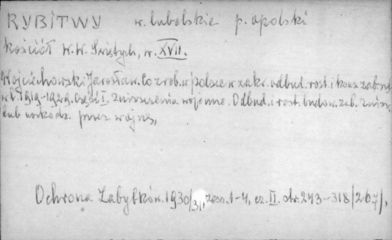 RYBITWY w. lubelskie p. opolski
Kościół W.W. Świętych, w. XVII.
Wojciechowski Jarosław. Co zrobiono w Polsce w zakr. odbud. rest. i konserw. zabytk.
w l. 1919-1929. Część I. Zniszczenia wojenne. Odbud. i rest. budow. zab. zniszcz.
lub uszkodz. przez wojnę,
Ochrona Zabytków. 1930/31, zesz. 1-4, cz. II. str. 243-318 (267).